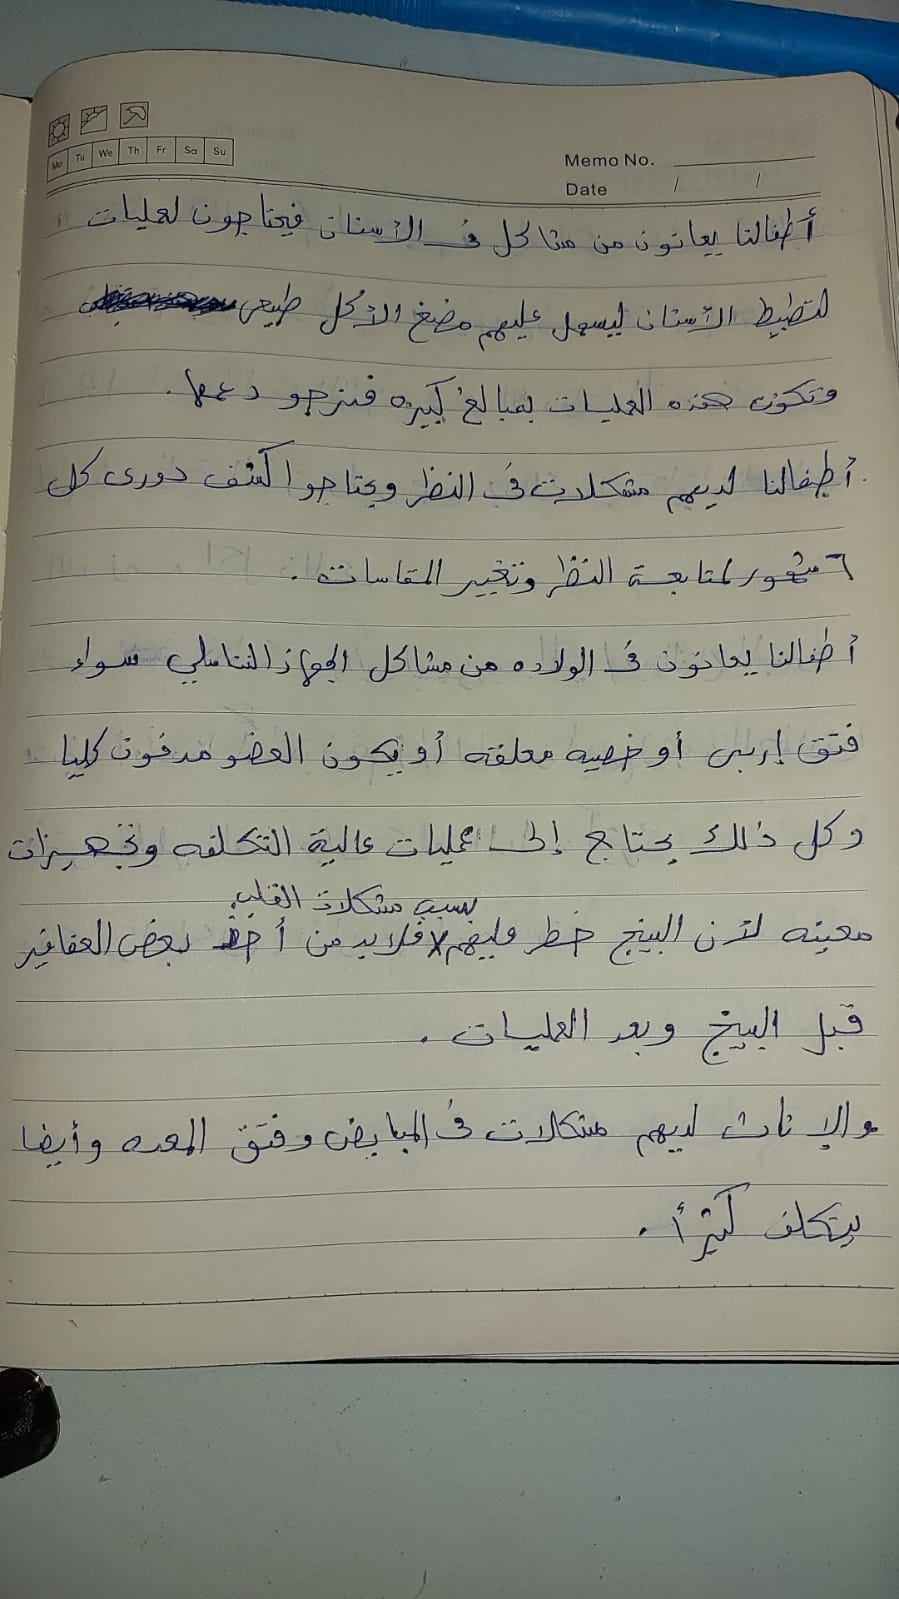 Mo Tu We Th Fr Sa Su
Memo No.
Date / /
أطفالنا يعانون من مشاكل فى الأسنان فيحتاجون لعمليات
لتظبيط الأسنان ليسهل عليهم مضغ الأكل طبيعى
وتكون هذه العمليات بمبالغ كبيره فنرجو دعمها.
أطفالنا لديهم مشكلات فى النظر ويحتاجوا كشف دورى كل
٦ شهور لمتابعة النظر وتغيير المقاسات.
أطفالنا يعانون فى الولاده من مشاكل الجهاز التناسلي سواء
فتق إربى أو خصيه معلقه أو يكون العضو مدفون كليا
وكل ذلك يحتاج إلى عمليات عالية التكلفه وتجهيزات
بسبب مشكلات القلب
معينه لأن البينج خطر عليهم فلابد من أخذ بعض العقاقير
قبل البينج وبعد العمليات.
والإناث لديهم مشكلات فى المبايض وفتق المعده وأيضا
يتكلف كثيرأ.